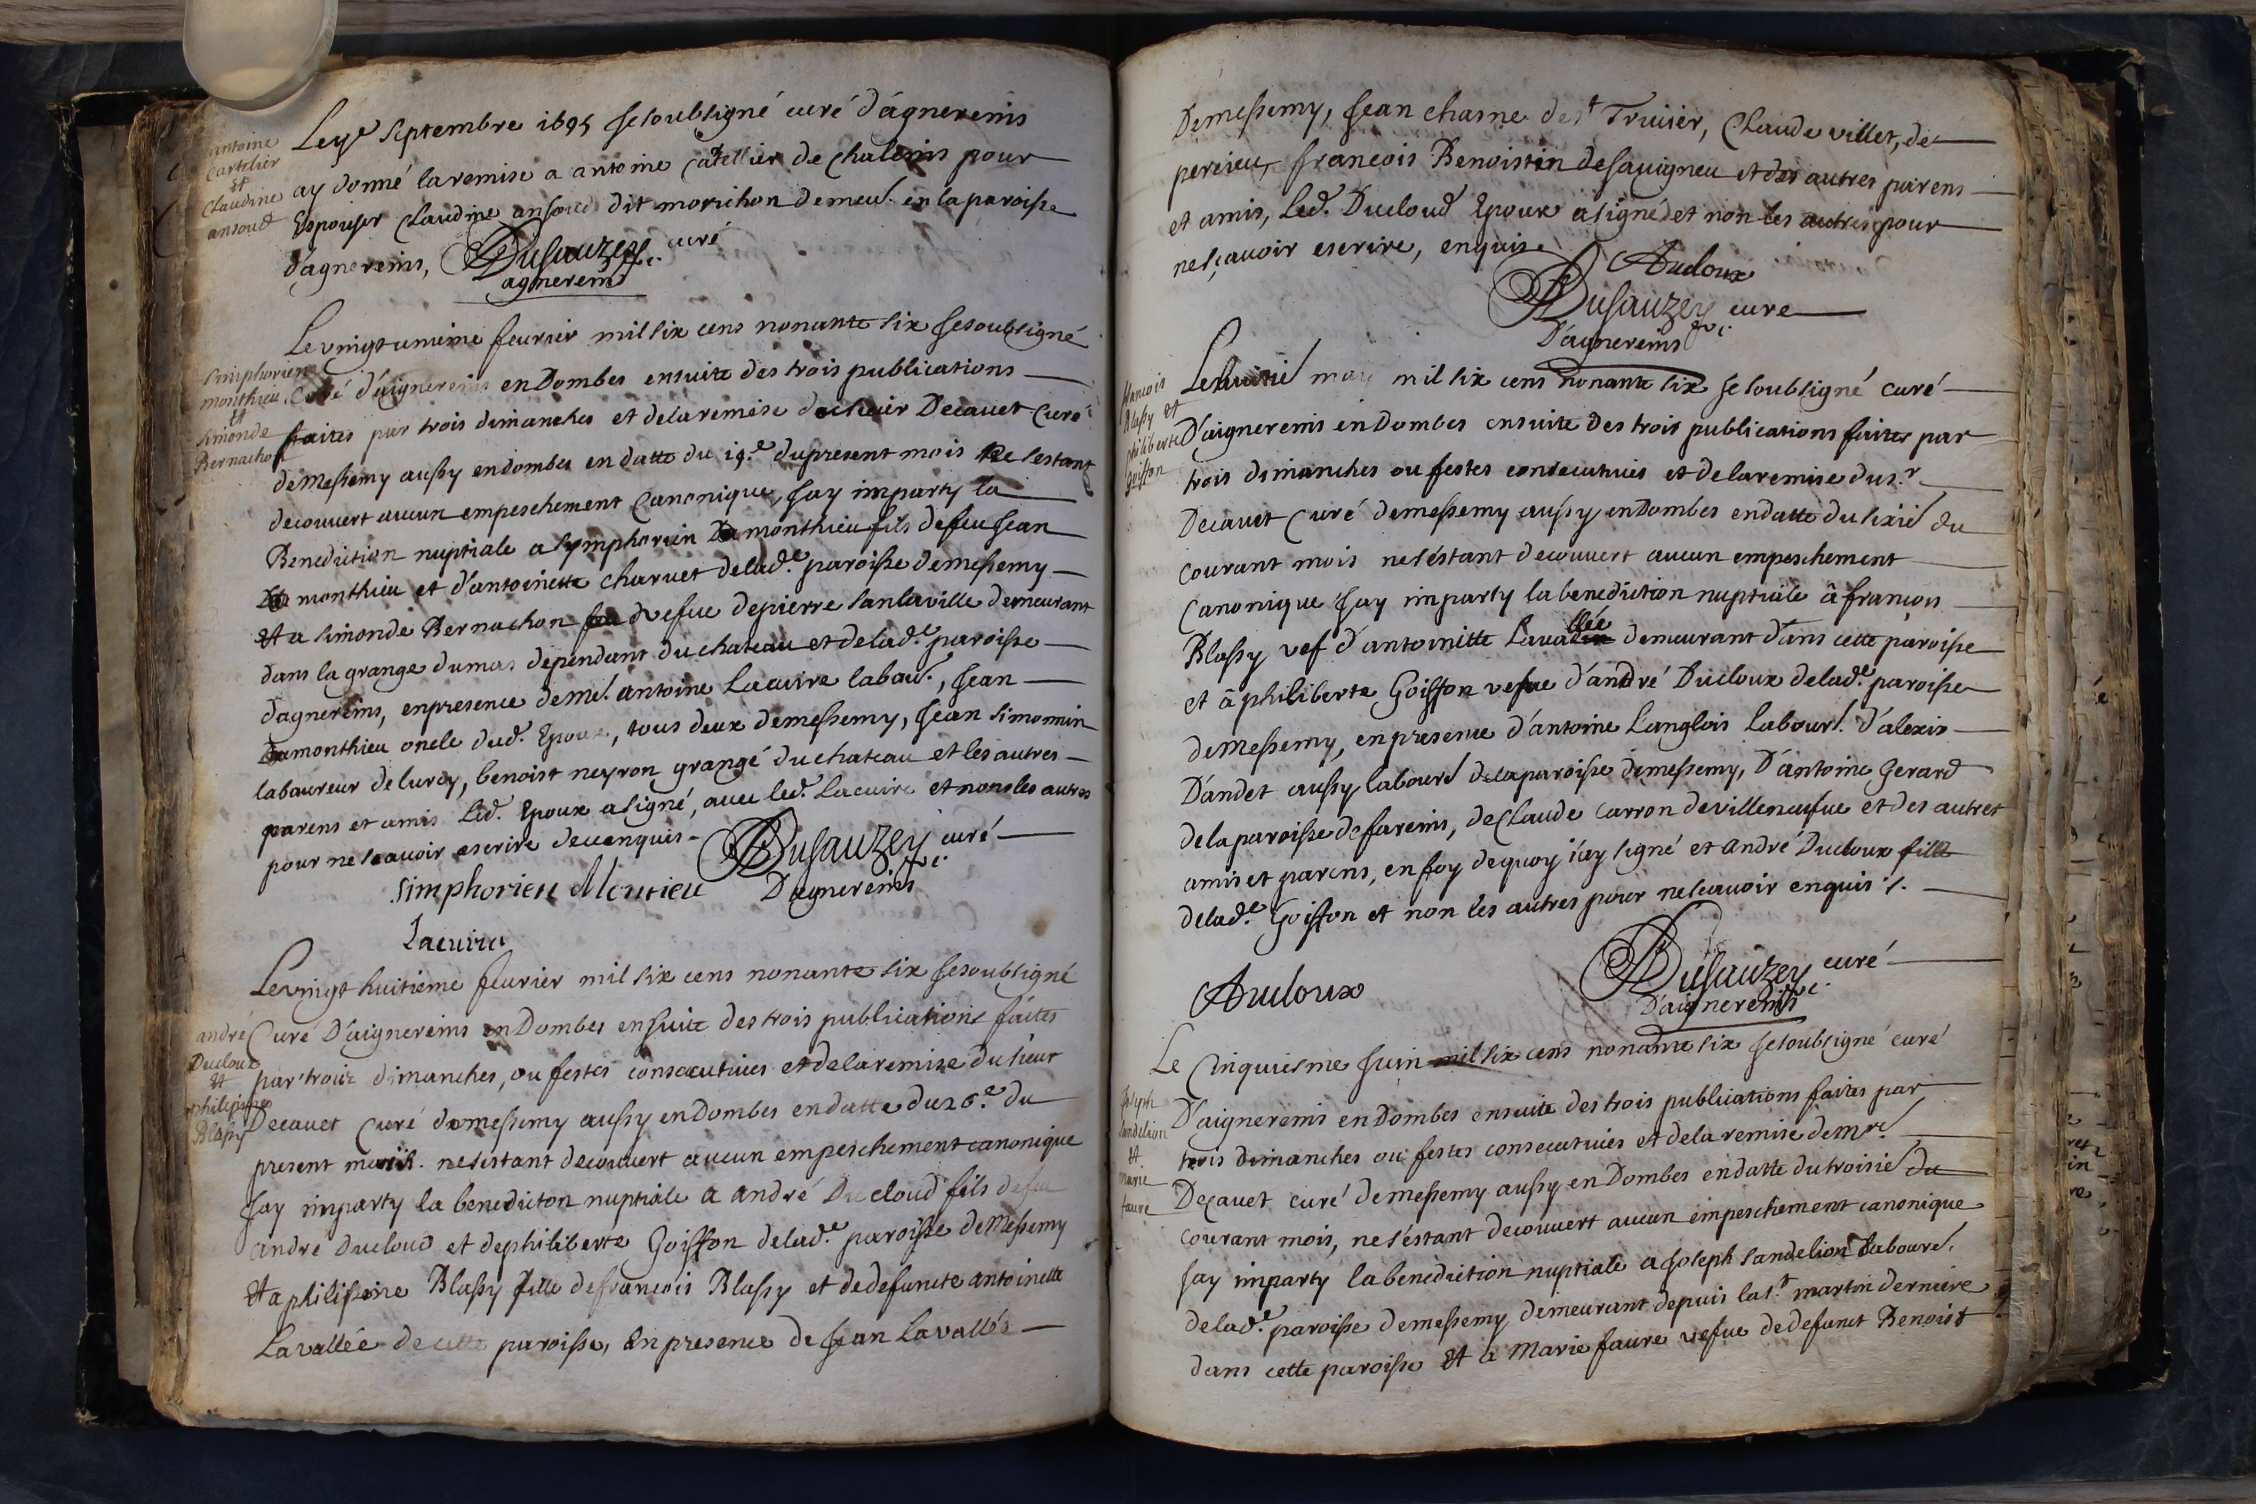 antoine
Cartelier
et
Claudine
ansoud
Le 9e septembre 1695 je soubsigné curé d'agnereins
ay donné la remise a antoine Catellier de Chaleins pour
Espouser Claudine ansoud dit morichon demeur. en la paroisse
d'agnereins, Dusauzey curé
agnereins
simphorien
monthieu
et
simonde
Bernachon
Le vingtunième feurier mil six cens nonante six Je soubsigné
Curé d'aignereins en Dombes ensuite des trois publications
faites par trois dimanches et de la remise de sieur Decauet Curé
de messemy aussy en dombes en datte du 19.e du present mois Ne s'estant
decouuert aucun empeschement Canonique, Jay imparty la
Benediction nuptiale a symphorien De monthieu fils de feu Jean
De monthieu et d'antoinette charuet de lad.e paroisse de messemy
Et a simonde Bernachon vefue de pierre sanlaville demeurant
dans la grange du mas dependant du chateau et de lad.e paroisse
d'agnereins, en presence de me. antoine Lacuire labou., Jean
Demonthieu oncle dud. Epoux, tous deux de messemy, Jean simonnin
laboureur de lurcy, benoist neyron grangé du chateau et les autres
parens et amis Led. Epoux a signé, auec led. Lacuire et non les autres
pour ne scauoir escrire de ce enquis
Dusauzey curé
D'agnereins
simphorien Montieu
Lacuire
andré
Ducloux
et
philipinne
Blassy
Le vingt huitième feurier mil six cens nonante six Je soubsigné
Curé D'aignereins en Dombes ensuite des trois publications faites
par trois dimanches, ou festes consecutiues et de la remise du sieur
Decauet Curé de messemy aussy en Dombes en datte du 26.e du
present mois. ne s'estant decouuert aucun empeschement canonique
Jay imparty la benediction nuptiale a andré Ducloud fils de feu
andré Ducloud et de philiberte Goiffon de lad.e paroisse de Messemy
Et a philipinne Blassy fille de francois Blassy et de defuncte antoinette
Lavallée de cette paroisse, En presence de Jean Lavallée
De messemy, Jean chasne de st Triuier, Claude villet, de
perrieu, francois Benoistin de sauigneu et des autres parens
et amis, Led. Ducloud Epoux a signé et non les autres pour
ne sçauoir escrire, enquis.
Aucloux
Dusauzey cure
D'agnereins
francois
Blassy et
philiberte
Goiffon
Le huitie may mil six cens nonante six Je soubsigné curé
D'aignereins en Dombes ensuite des trois publications faites par
trois dimanches ou festes consecutiues et de la remise du s.r
Decauet Curé de messemy aussy en Dombes en datte du sixie du
courant mois ne s'éstant decouuert aucun empeschement
Canonique Jay imparty la benediction nuptiale â francois
Blassy vef d'antoinitte Lavallée demeurant dans cette paroisse
et â philiberte Goiffon vefue d'andré Ducloux de lad.e paroisse
de Messemy, en presence d'antoine L'anglois Labour. d'alexis
D'andet aussy laboure de la paroisse de messemy, D'antoine Gerard
de la paroisse de fareins, de Claude Carron de villeneufue et des autres
amis et parens, en foy de quoy j'ay signé et andré Ducloux fills
de lad.e Goiffon et non les autres pour ne scauoir enquis s.
Aucloux
Dusauzey curé
D'aignereins
Joseph
sandelion
et
marie
faure
Le Cinquiesme Juin mil six cens nonante six Je soubsigné curé
D'aignereins en Dombes ensuite des trois publications faites par
trois dimanches ou festes consecutiues et de la remise de mre.
Decauet curé de messemy aussy en Dombes en datte du troisie du
courant mois, ne s'éstant decouuert aucun empeschement canonique
Jay imparty la benediction nuptiale a Joseph sandelion Laboure.
de lad.e paroisse de messemy demeurant depuis la s.t martin derniere
dans cette paroisse Et a Marie faure vefue de defunct Benoist